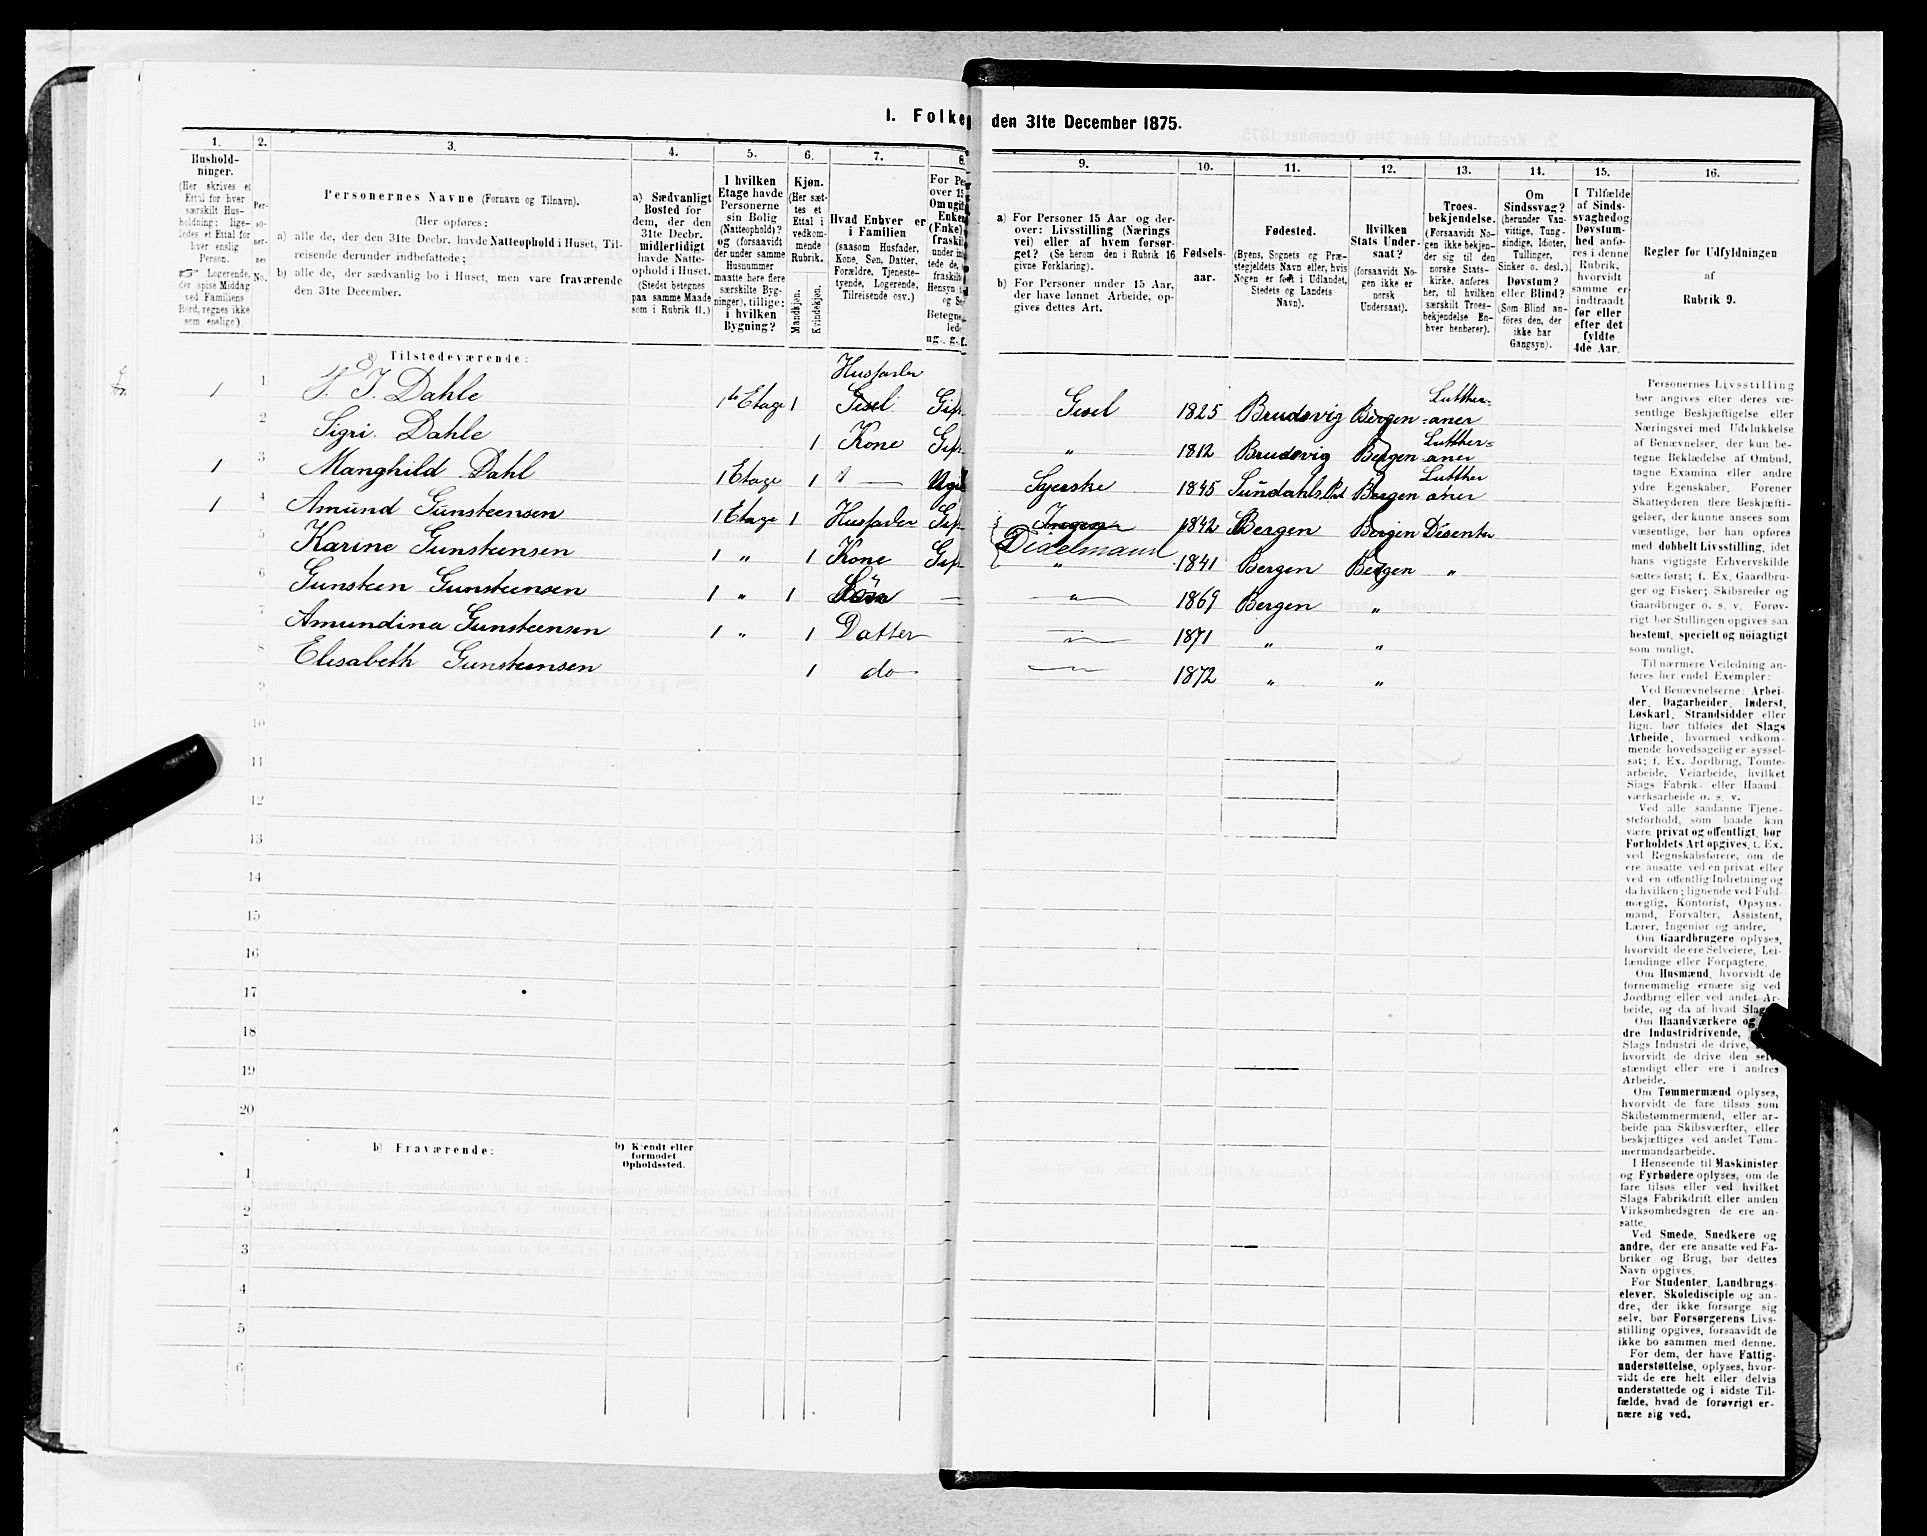 I. Folke
den 31te December 1875.
1.
2.
3.
4.
5.
6.
7.
8.
9.
10.
11.
12.
13.
14.
15.
16.
Hushold-
ninger.
(Her skrives et
Ettal for hver
særskilt Hus-
holdning; lige-
ledes et Ettal for
hver enslig
Person.
☞ Logerende,
der spise Middag
ved Familiens
Bord, regnes ikke
som enslige)
Per-
so-
ner-
nes
No.
Personernes Navne (Fornavn og Tilnavn).
(Her opføres:
a) alle de, der den 31te Decbr. havde Natteophold i Huset, Til-
reisende derunder indbefattede;
b) alle de, der sædvanlig bo i Huset, men vare fraværende
den 31te December.
a) Sædvanligt
Bosted for
dem, der den
31te Decbr.
midlertidigt
havde Natte-
ophold i Huset.
(Stedet betegnes
paa samme Maade
som i Rubrik 11.)
I hvilken
Etage havde
Personerne
sin Bolig
(Natteophold)?
og (forsaavidt
der under samme
Husnummer
maatte høre flere
særskilte Byg-
ninger), tillige:
i hvilken
Bygning?
Kjøn.
(Her sæt-
tes et
Ettal i
vedkom-
mende
Rubrik.
Mandkjøn.
Kvindekjøn.
Hvad Enhver er
i Familien
(saasom Husfader,
Kone, Søn, Datter,
Forældre, Tjeneste-
tyende, Logerende,
Tilreisende osv.)
For Pe
over 15
Om ugif
Enken
(Enke)
fraskil
under in
tede de,
fraskilt
Hensyn t
og S
Betegne
lede
ug., g.,
a) For Personer 15 Aar og der-
over: Livsstilling (Nærings
vei) eller af hvem forsør-
get? (Se herom den i Rubrik 16
givne Forklaring).
b) For Personer under 15 Aar,
der have lønnet Arbeide, op-
gives dettes Art.
Fødsels-
aar.
Fødested.
(Byens, Sognets og Præ-
stegjeldets Navn eller, hvis
Nogen er født i Udlandet,
Stedets og Landets
Navn).
Hvilken
Stats Under-
saat?
(forsaavidt No-
gen ikke er
norsk
Undersaat).
Troes-
bekjendelse.
(Forsaavidt No-
gen ikke bekjen-
der sig til den
norske Stats-
kirke, anføres
her, til hvilken
særskilt Troes-
bekjendelse En-
hver henhører).
Om
Sindssvag?
(herunder Van-
vittige, Tung-
sindige, Idioter,
Tullinger,
Sinker o. desl.)
Døvstum?
eller Blind?
(Som Blind an-
føres den, der
ikke har
Gangsyn).
I Tilfælde
af Sinds-
svaghed og
Døvstum-
hed anfø-
res i denne
Rubrik,
hvorvidt
samme er
indtraadt
før eller
efter det
fyldte
4de Aar.
Regler for Udfyldningen
af
Rubrik 9.
a) Tilstedeværende:
1 1 J. Dahle 1ste Etage 1 Husfader Gesel Gift Gesel 1825 Brudsvig Bergen Lutther-aner
2 Sigri Dahle 1 Kone Gift " 1812 Brudsvig Bergen Lutther-aner
1 3 Manghild Dahl 1 Etage 1 Ugi Syerske 1845 Sundahls Bergen Lutther aner
1 4 Amund Gunsteensen 1 Etage 1 Husfader Gift Didelmann 1842 Bergen Bergen Disenter
5 Karine Gunsteensen 1 " 1 Kone Gift " 1841 Bergen Bergen "
6 Gunsteen Gunsteensen 1 " 1 Søn — " 1869 Bergen "
7 Amundina Gunsteensen 1 " 1 Datter " 1871 " "
8 Elisabeth Gunsteensen 1 do " 1872 " "
9
10
11
12
13
14
15
16
17
18
19
20
b) Fraværende:
b) Kjendt eller
formodet
Opholdssted.
1
2
3
4
5
6
Personernes Livsstilling
bør angives efter deres væ-
sentlige Beskjæftigelse eller
Næringsvei med Udelukkelse
af Benævnelser, der kun be-
tegne Beklædelse af Ombud,
tagne Examina eller andre
ydre Egenskaber. Forener
Skatteyderen flere Beskjæfti-
gelser, der kunne ansees som
væsentlige, bør han opføres
med dobbelt Livsstilling, idet
hans vigtigste Erhvervskilde
sættes først; f. Ex. Gaardbru-
ger og Fisker; Skibsreder og
Gaardbruger o. s. v. Forøv-
rigt bør Stillingen opgives saa
bestemt, specielt og nøiagtigt
som muligt.
Til nærmere Veiledning an-
føres her endel Exempler:
Ved Benævnelserne: Arbei-
der, Dagarbeider, Inderst,
Løskarl, Strandsidder eller
lign. bør tilføies det Slags
Arbeide, hvormed vedkom-
mende hovedsagelig er syssel-
sat; f. Ex. Jordbrug, Tomte-
arbeide, Veiarbeide, hvilket
Slags Fabrik- eller Haand
værksarbeide o. s. v.
Ved alle saadanne Tjene-
steforhold, som baade kan
være privat og offentligt, bør
Forholdets Art opgives, t. Ex.
ved Regnskabsførere, om de
ere ansatte ved en privat eller
ved en offentlig Indretning og
da hvilken; lignende ved Fuld-
mægtig, Kontorist, Opsyns-
mand, Forvalter, Assistent,
Lærer, Ingeniør og andre.
Om Gaardbrugere oplyses,
hvorvidt de ere Selveiere, Lei-
lændinge eller Forpagtere.
Om Husmænd, hvorvidt de
fornemmelig ernære sig ved
Jordbrug eller ved andet Ar-
beide, og da af hvad Slags
Om Haandværkere og
dre Industridrivende,
Slags Industri de drive,
hvorvidt de drive den selv
stændigt eller ere i andres
Arbeide.
Om Tømmermænd oplyses,
hvorvidt de fare tilsøs som
Skibstømmermænd, eller ar-
beide paa Skibsværfter, eller
beskjæftiges ved andet Tøm-
mermandsarbeide.
I Henseende til Maskinister
og Fyrbødere oplyses, om de
fare tilsøs eller ved hvilket
Slags Fabrikdrift eller anden
Virksomhedsgren de ere an-
satte.
Ved Smede, Snedkere og
andre, der ere ansatte ved Fa-
briker og Brug, bør dettes
Navn opgives.
For Studenter, Landbrugs-
elever, Skoledisciple og an-
dre, der ikke forsørge sig
selv, bør Forsørgerens Livs-
stilling opgives, forsaavidt de
ikke bo sammen med denne.
For dem, der have Fattig-
understøttelse, oplyses, hvor-
vidt de ere helt eller delvis
understøttede og i sidste Til-
fælde, hvad de forøvrigt er-
nære sig ved.